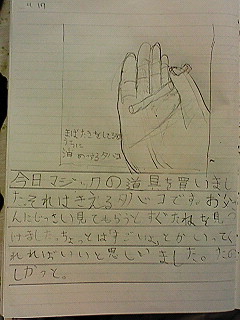 まばたきをしてる
うちに
消めーるタバコ
今日マジックの道具を買いまし
た。それはきえるタバコです。おじさ
んにじっさい見てもらうとすぐたねを見つ
けました。ちょっとは「すごいよ」とかいってく
れればいいと思いました。
しかっと。